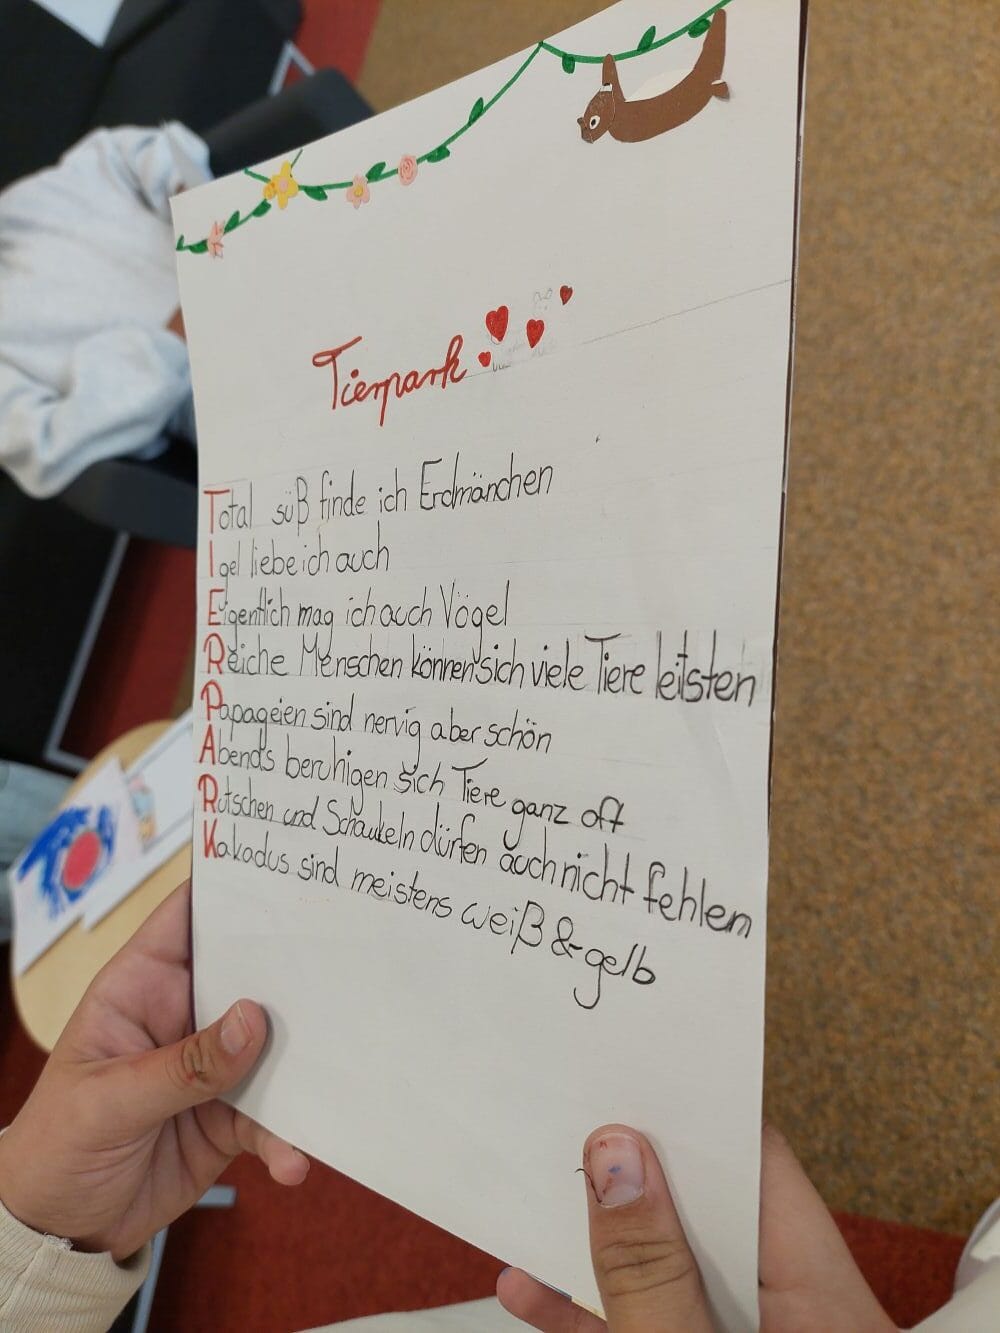 Tierpark
Total süß finde ich Erdmänchen
Igel liebe ich auch
Eigentlich mag ich auch Vögel
Reiche Menschen können sich viele Tiere leitsten
Papageien sind nervig aber schön
Abends beruhigen sich Tiere ganz oft
Rutschen und Schaukeln dürfen auch nicht fehlem
Kakadus sind meistens weiß & gelb